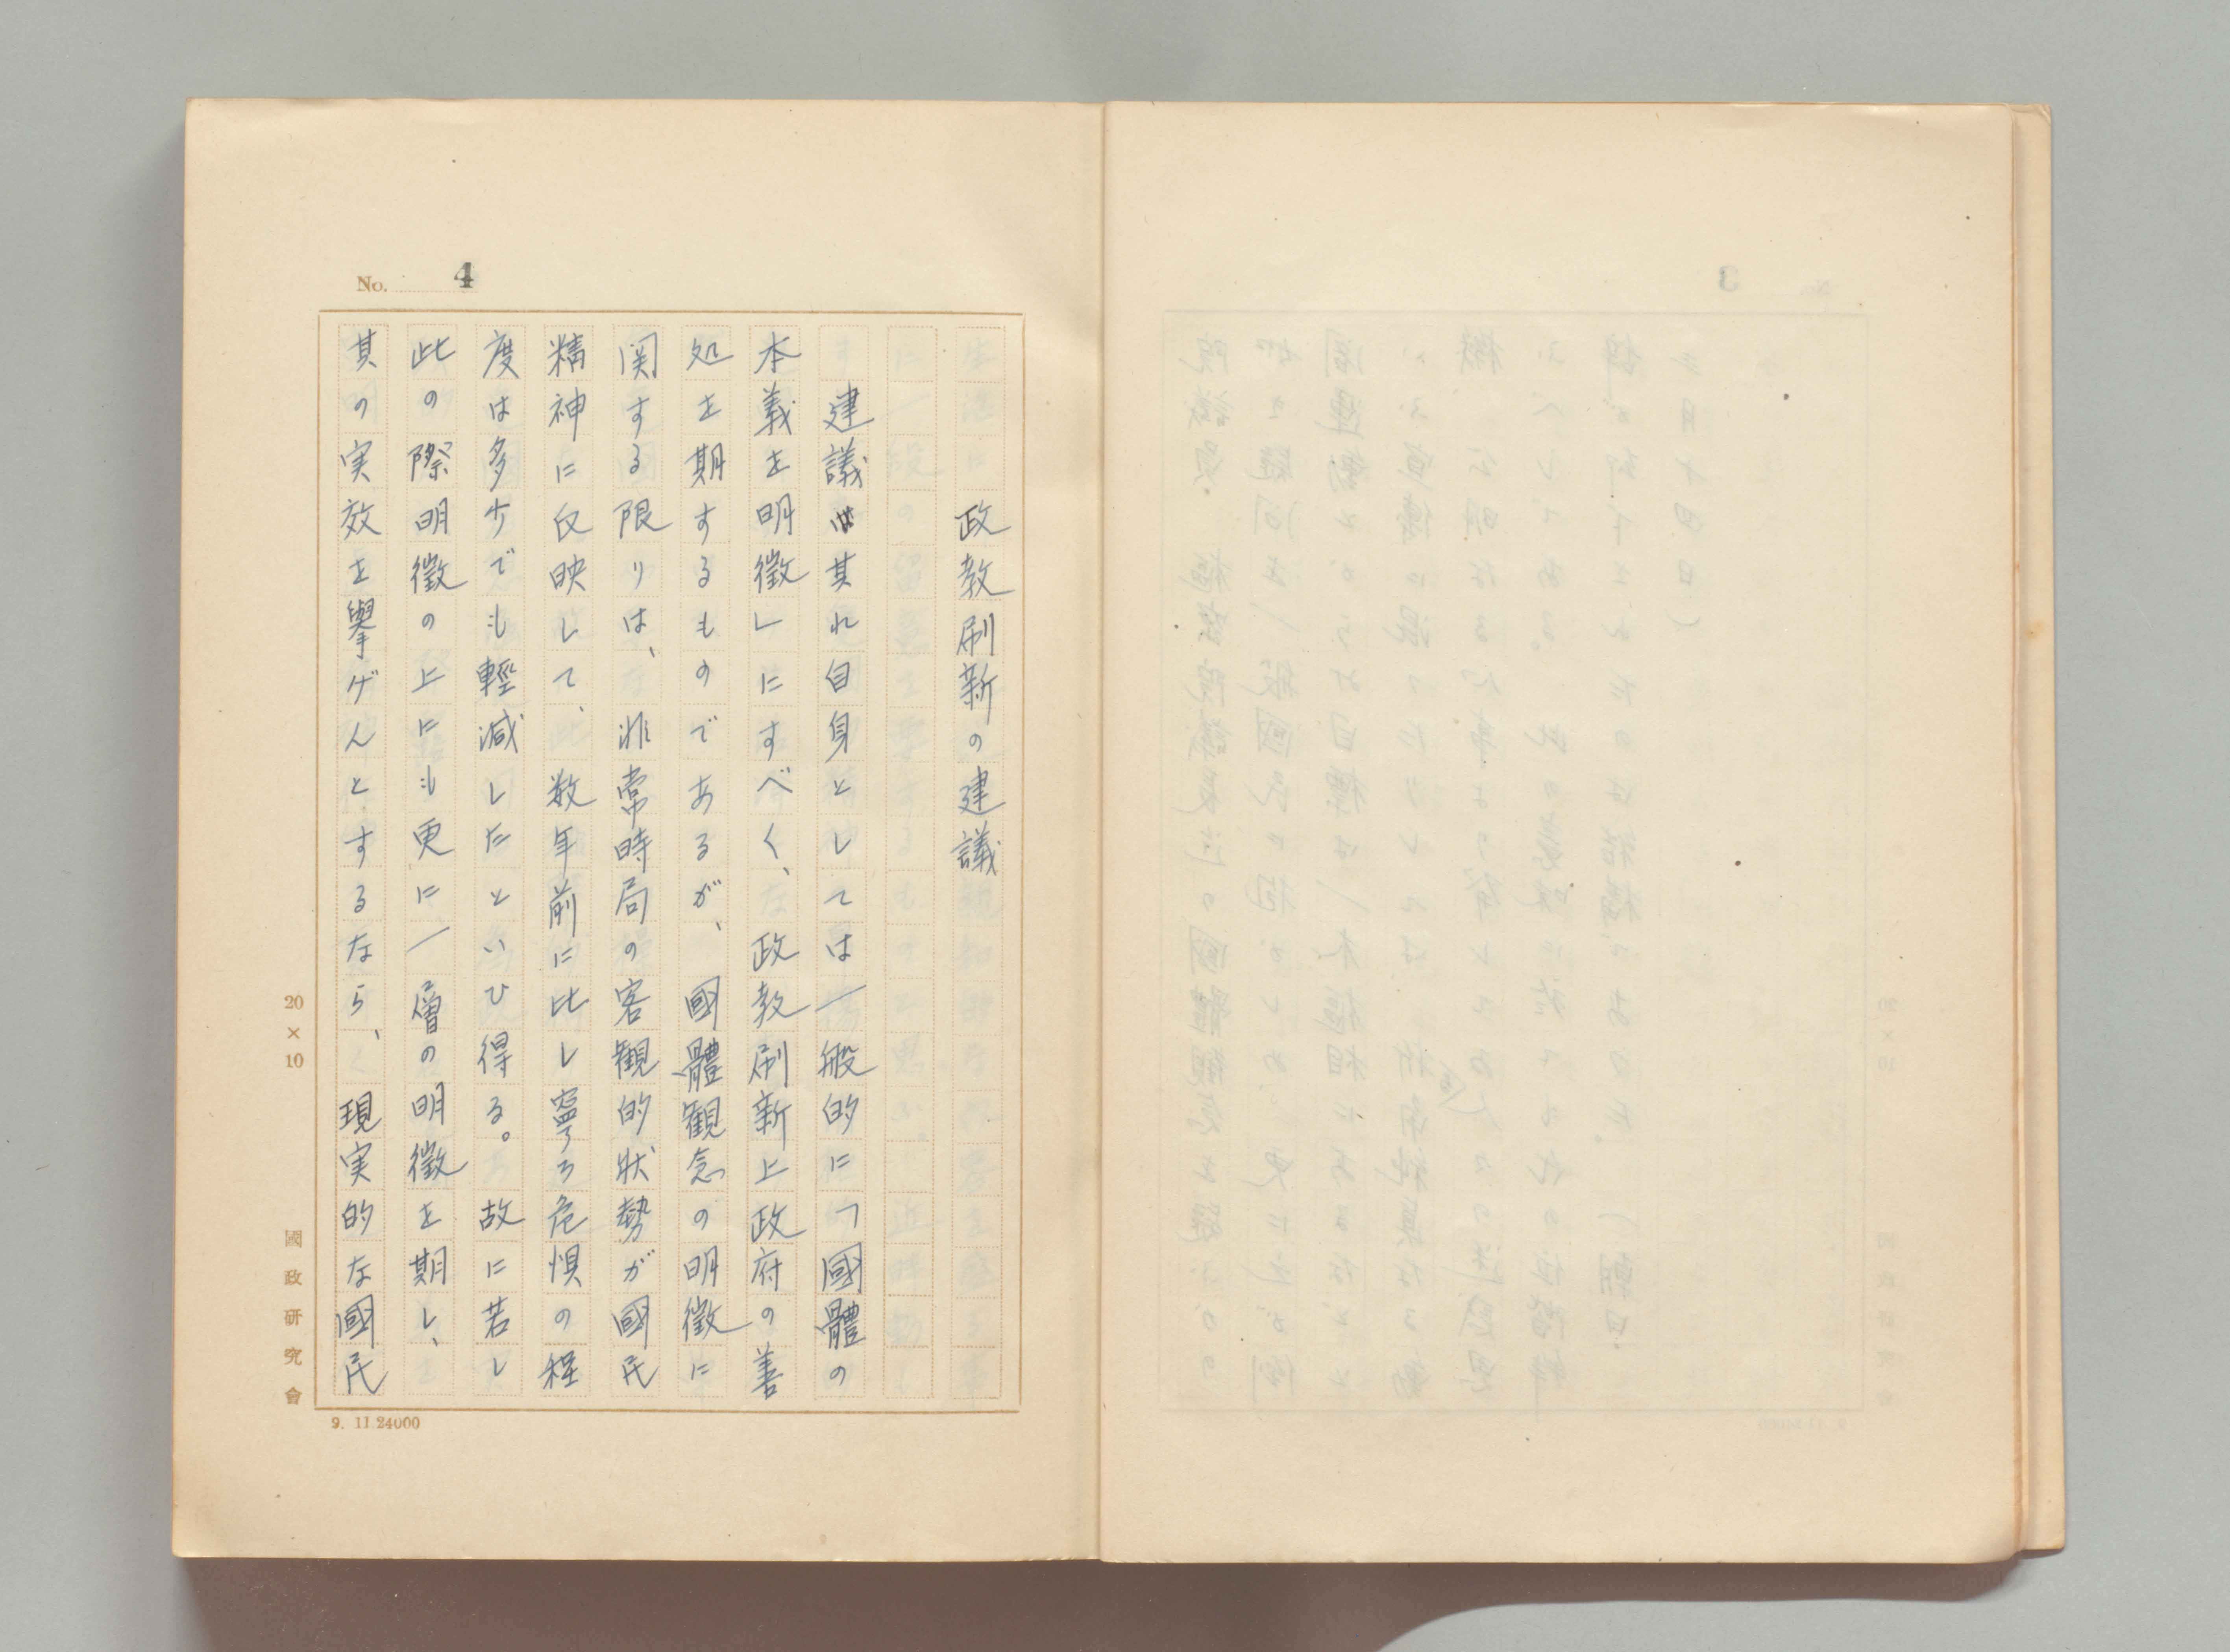 No. 4
政教刷新の建議
建議は其れ自身としては一般的に「國體の
本義を明徴」にすべく、政教刷新上政府の善
処を期するものであるが、國體観念の明徴に
関する限りは、非常時局の客観的状勢が國民
精神に反映して、数年前に比し寧ろ危惧の程
度は多少でも軽減したといひ得る。故に若し
此の際明徴の上にも更に一層の明徴を期し、
其の実效を擧げんとするなら、現実的な國民
20×10
國政研究會
9. 11 24000